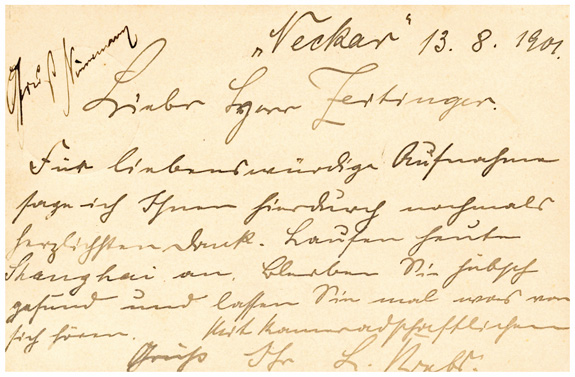 „Neckar“ 13. 8. 1901.
Gruß
Lieber Herr Zeitinger.
Für liebenswürdige Aufnahme
sage ich Ihnen hierdurch nochmals
herzlichsten Dank. Laufen heute
Shanghai an. Bleiben Sie hübsch
gesund und lassen Sie mal was von
sich hören. Mit kameradschaftlichem
Gruß Ihr L. Krebs.